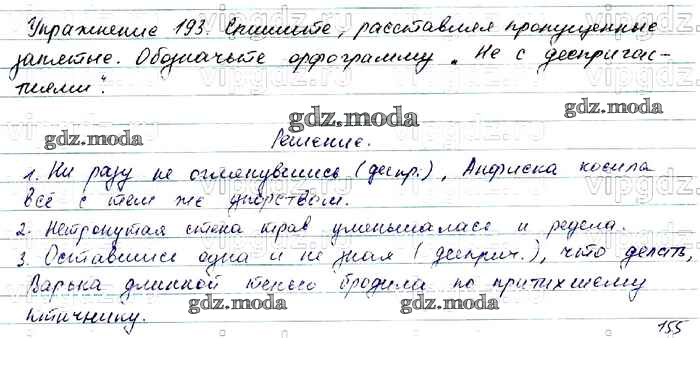 Упражнение 193. Спишите, расставляя пропущенные
запятые. Обозначьте орфограмму „Не с деепричас-
тиями".
gdz.moda
gdz.moda
gdz.moda
Решение.
1. Ни разу не оглянувшись (деепр.), Анфиска косила
всё с тем же упорством.
2. Нетронутая стена трав уменьшалась и редела.
3. Оставшись одна и не зная (дееприч.), что делать,
Варька длинной тенью бродила по притихшему
gdz.moda
gdz.moda
птичнику.
155